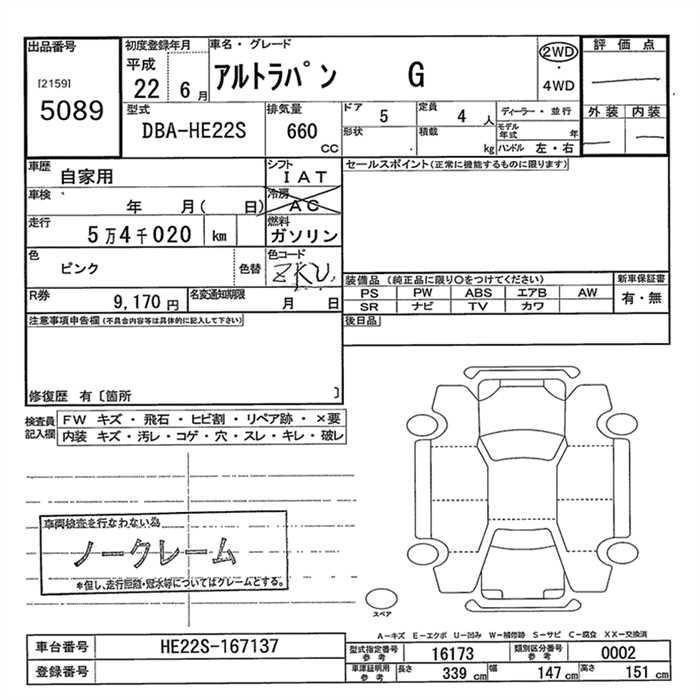 出品番号
[2159]
5089
初度登録年月
平成
22 6月
車名・グレード
アルトラパン G
2WD
・
4WD
評価点
外装 内装
型式
DBA-HE22S
排気量
660 CC
ドア 5
形状
定員 4 人
積載 kg
ディーラー・並行
モデル年式 年
ハンドル 左・右
車歴 自家用
シフト IAT
セールスポイント(正常に機能するものに限ります)
車検 年 月( 日)
冷房 AC
走行 5万4千020 km
燃料 ガソリン
色 ピンク 色替
色コード ZKU
装備品 (純正品に限り○をつけてください)
PS PW ABS エアB AW
SR ナビ TV カワ
新車保証書
有・無
R券 9,170 円
名変通知期限 月 日
後日品
注意事項申告欄(不具合内容等は具体的に記入して下さい)
修復歴 有〔箇所 〕
検査員記入欄
FW キズ・飛石・ヒビ割・リペア跡・×要
内装 キズ・汚レ・コゲ・穴・スレ・キレ・破レ
車両検査を行なわない為
ノークレーム
*但し、走行距離・冠水等についてはクレームとする。
スペア
A-キズ E-エクボ U-凹み W-補修跡 S-サビ C-腐食 XX-交換済
車台番号 HE22S-167137
登録番号
型式指定番号参考 16173
類別区分番号参考 0002
車庫証明用参考 長さ 339 cm 幅 147 cm 高さ 151 cm